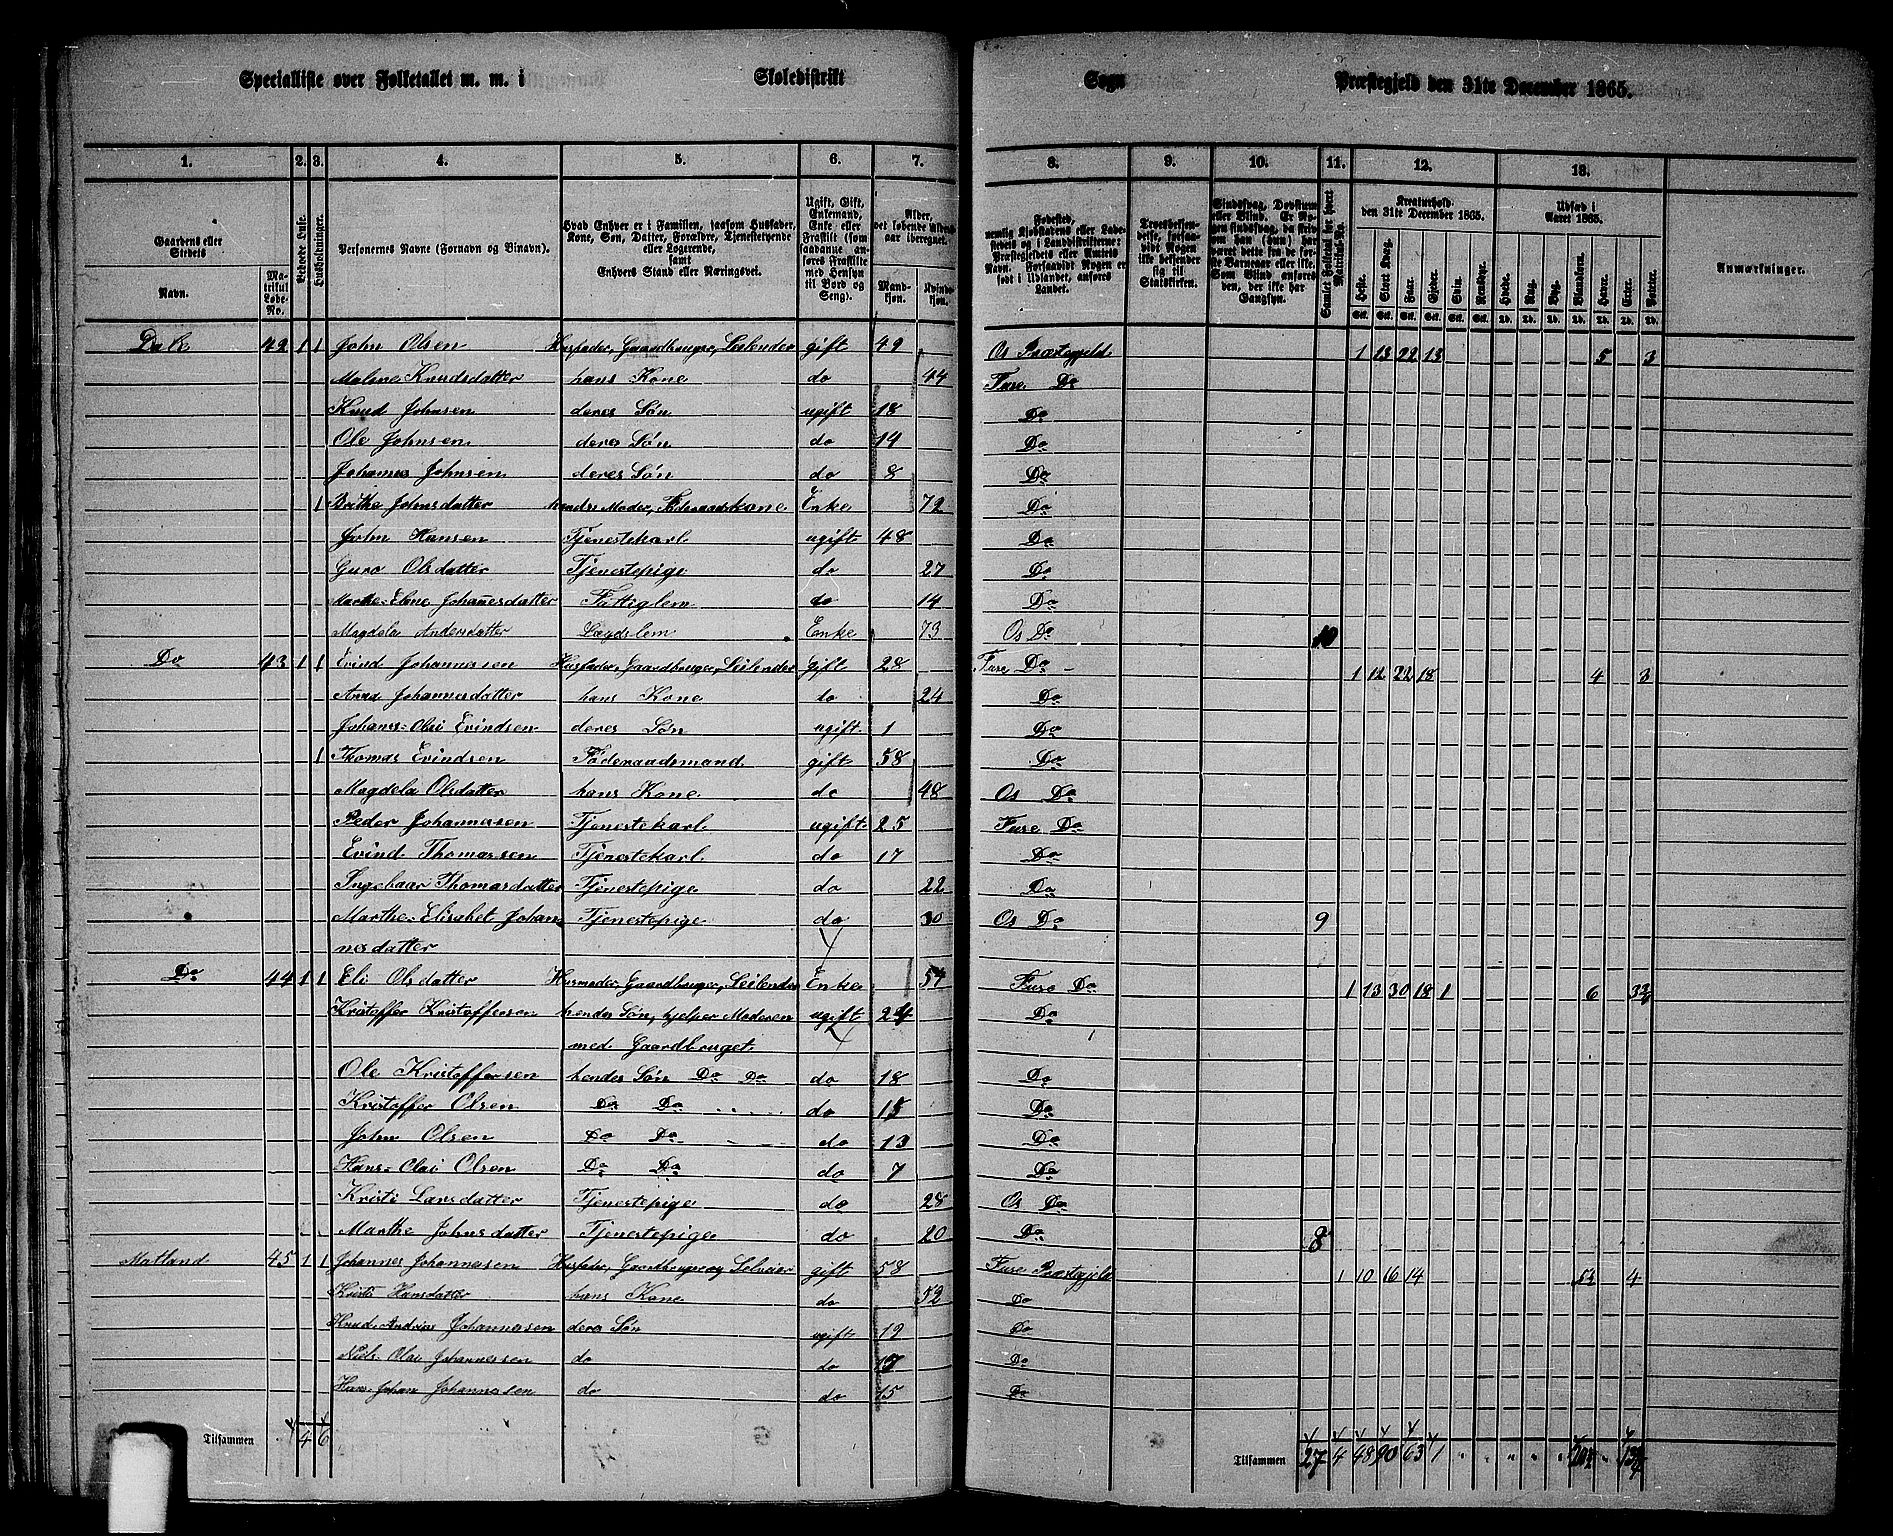 Specialliste over Folketallet m. m. i Skoledistrikt Sogn Præstegjeld den 31te December 1865.
1. 2. 3. 4. 5. 6. 7. 8. 9. 10. 11. 12. 13.
Gaardens eller Stedets Navn.
Matrikul Løbe-No.
Beboede Huse.
Husholdninger.
Personernes Navne (Fornavn og Binavn).
Hvad Enhver er i Familien, saasom Husfader, Kone, Søn, Datter, Forældre, Tjenestetyende eller Logerende, samt Enhvers Stand eller Næringsvei.
Ugift, Gift, Enkemand, Enke eller Fraskilt (som saadanne anføres Fraskilte med Hensyn til Bord og Seng).
Alder, det løbende Aldersaar iberegnet.
Mandkjøn. Kvindekjøn.
Fødested, nemlig Kjøbstadens eller Ladestedets og i Landdistrikterne: Præstegjeldets eller Amtets Navn. Forsaavidt Nogen er født i Udlandet, anføres Landet.
Troesbekjendelse, forsaavidt Nogen ikke bekjender sig til Statskirken.
Sindssvag, Døvstum eller Blind.
Samlet Folketal for hvert Matrikul-No.
Kreaturhold den 31te December 1865.
Heste. Stort Kvæg. Faar. Gjeder. Svin. Rensdyr.
Udsæd i Aaret 1865.
Hvede. Rug. Byg. Blandkorn. Havre. Erter. Poteter.
Anmærkninger.
Dale 42 1 1 John Olsen Husfader, Gaardbruger, Leilending gift 49 Os Præstegjeld 1 13 22 13 5 3
Malene Knudsdatter hans Kone do 44 Fuse Do
Knud Johnsen deres Søn ugift 18 Do
Ole Johnsen deres Søn do 14 Do
Johannes Johnsen deres Søn do 8 Do
1 Brithe Johnsdatter Mandens Moder, Føderaadskone Enke 72 Do
John Hansen Tjenestekarl ugift 48 Do
Guro Olsdatter Tjenestepige do 27 Do
Marthe-Elene Johannesdatter Fattiglem do 14 Do
Magdela Andersdatter Lægdslem Enke 73 Os Do 10
Do 43 1 1 Evind Johannesen Husfader, Gaardbruger, Leilending gift 28 Fuse Do 1 12 22 18 4 3
Anna Johannesdatter hans Kone do 24 Do
Johans-Olai Evindsen deres Søn ugift 1 Do
1 Thomas Evindsen Føderaadsmand gift 58 Do
Magdela Olsdatter hans Kone do 48 Os Do
Peder Johannesen Tjenestekarl ugift 25 Fuse Do
Evind Thomassen Tjenestekarl do 17 Do
Ingebaar Thomasdatter Tjenestepige do 22 Do
Marthe-Elisabet Johan- Tjenestepige do 30 Os Do 9
nesdatter
Do 44 1 1 Eli Olsdatter Husmoder, Gaardbruger, Leilending Enke 54 Fuse Do 1 13 30 18 1 6
Kristoffer Kristoffersen hendes Søn, hjelper Moderen ugift 24 Do
med Gaardbruget
Ole Kristoffersen hendes Søn Do Do do 18 Do
Kristoffer Olsen Do Do do 15 Do
John Olsen Do Do do 13 Do
Hans-Olai Olsen Do Do do 7 Do
Kristi Larsdatter Tjenestepige do 28 Os Do
Marthe Johnsdatter Tjenestepige do 20 Do 8
Matland 45 1 1 Johannes Johannesen Husfader, Gaardbruger og Selveier gift 58 Fuse Præstegjeld 1 10 16 14 5½ 4
Kristi Hansdatter hans Kone do 52 Do
Knud-Andreas Johannesen deres Søn ugift 19 Do
Niels-Olai Johannessen do do 17 Do
Hans-Johan Johannesen do do 15 Do
Tilsammen 4 6
Tilsammen 27 4 48 90 63 1